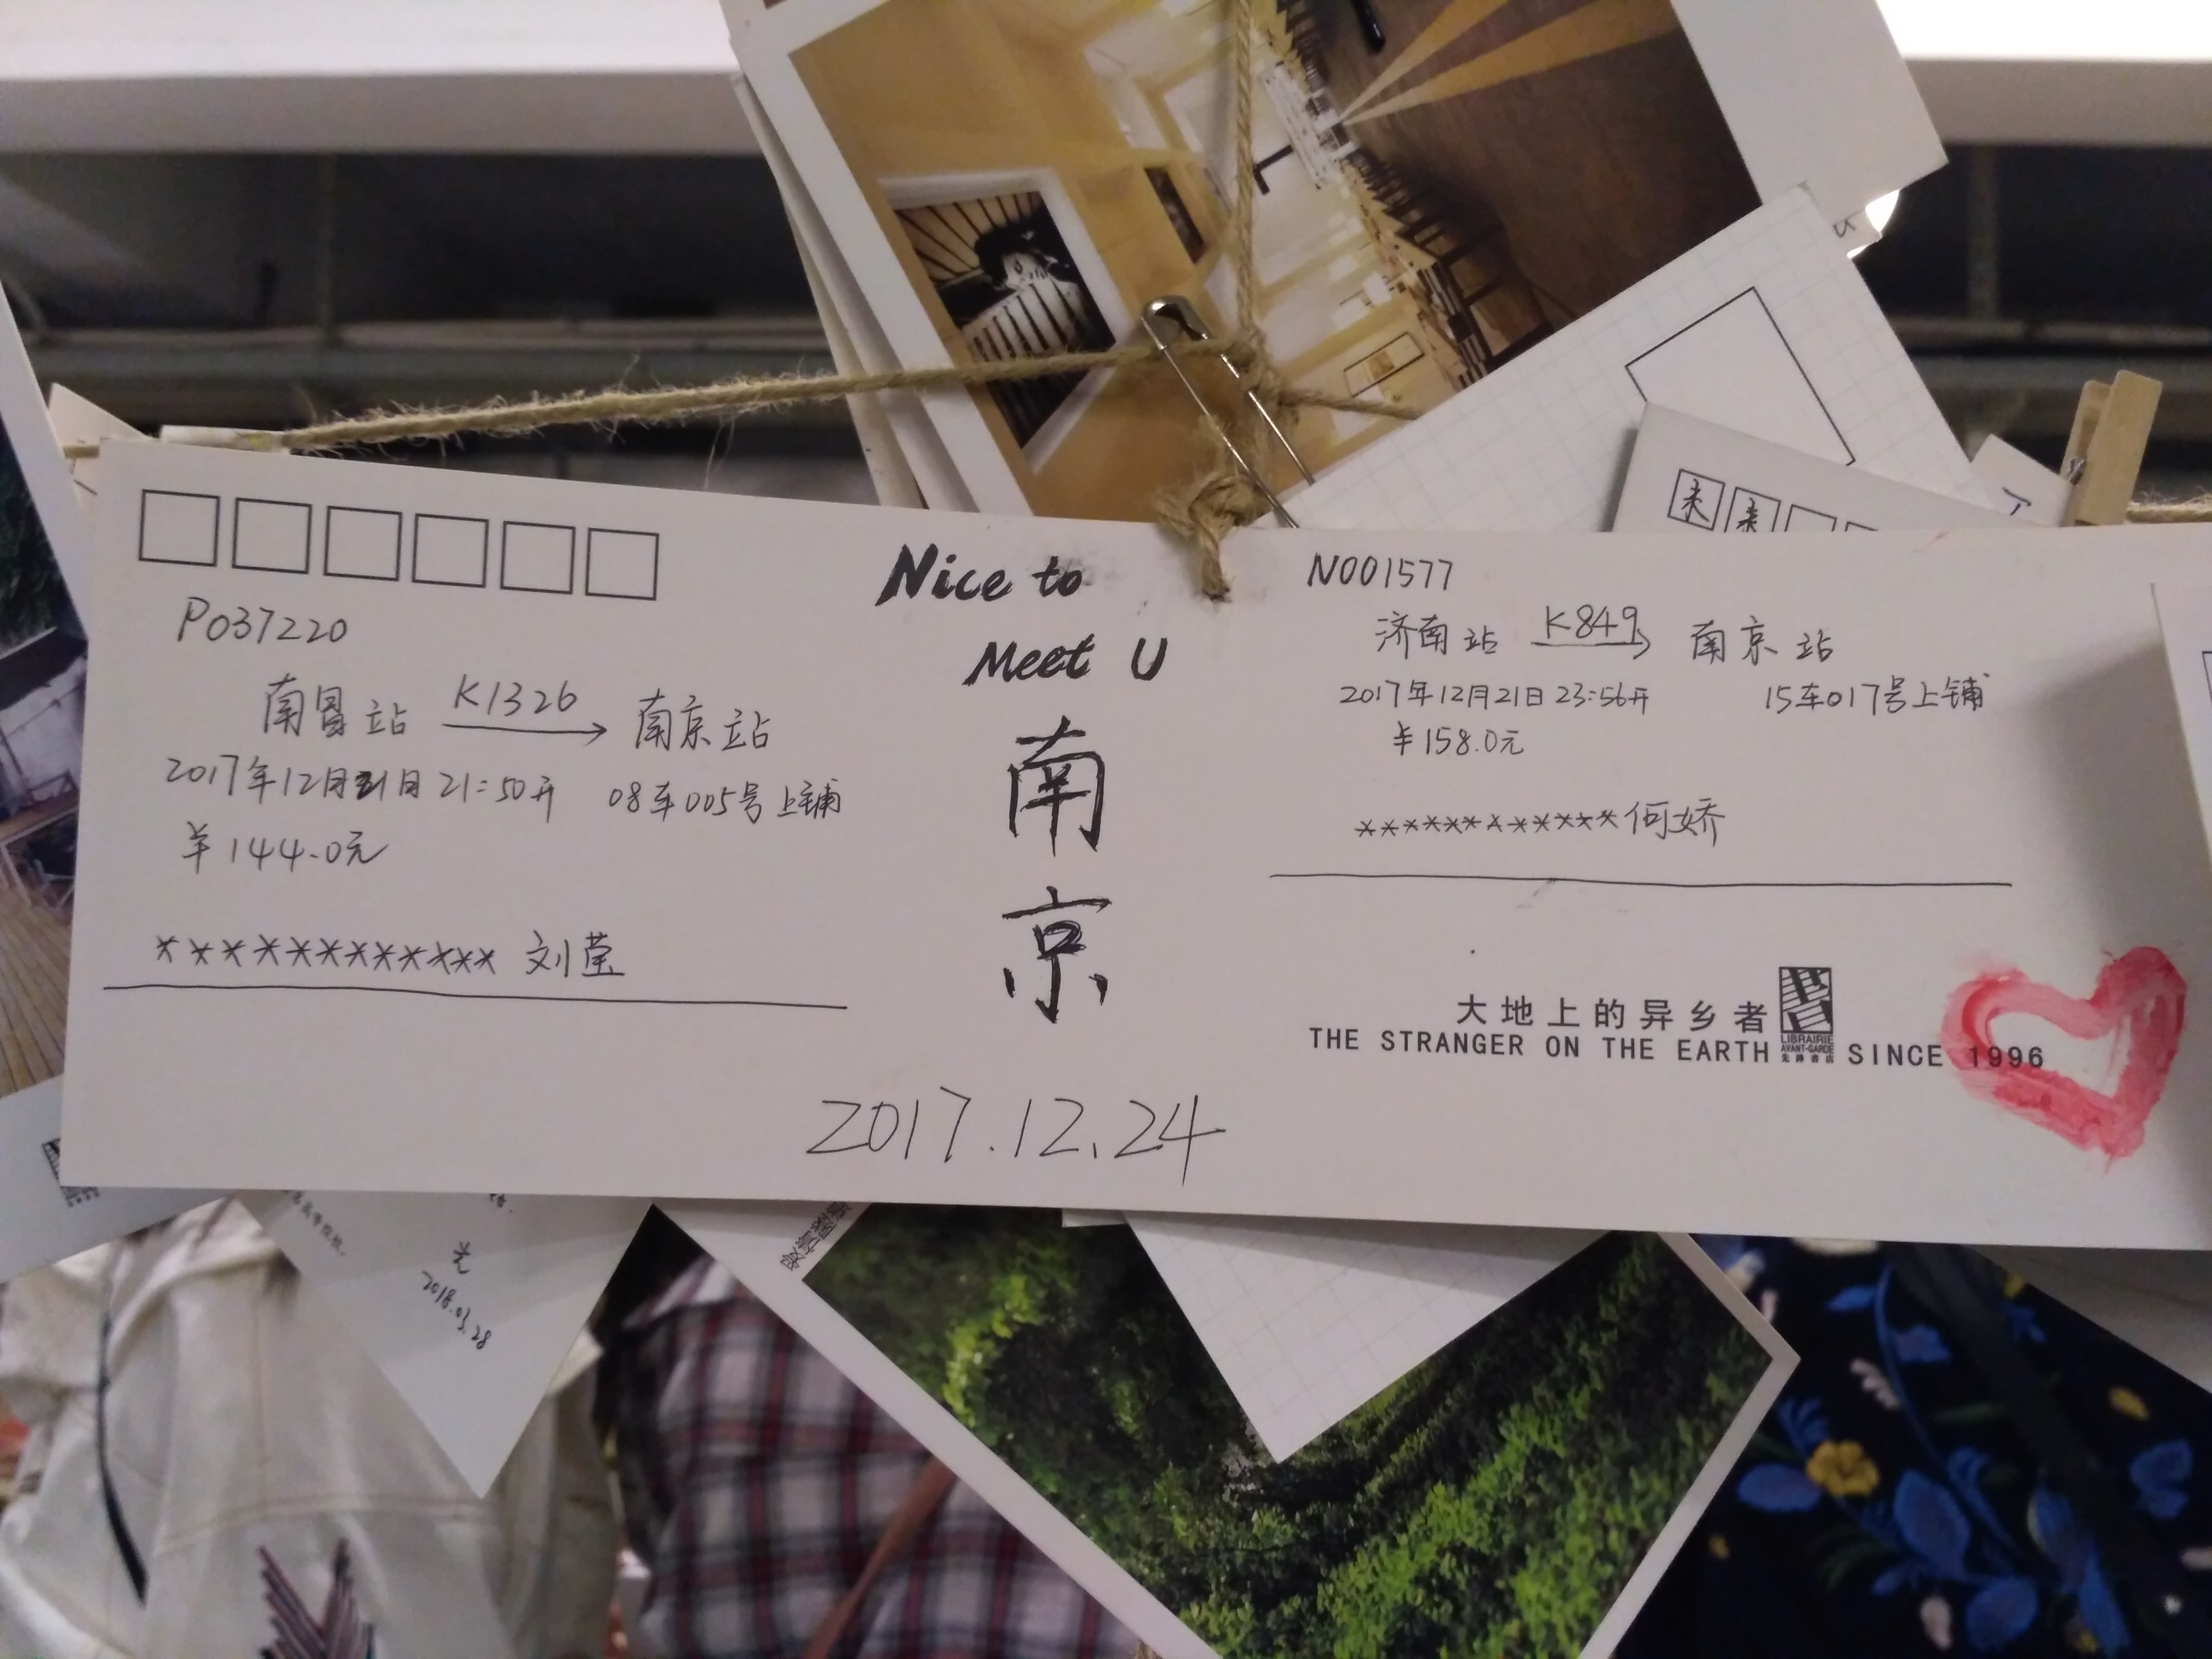 P037220
南昌站 K1326 南京站
2017年12月21日 21:50开 08车005号上铺
￥144.0元
************ 刘莹
Nice to
Meet U
南
京
2017.12.24
N001577
济南站 K849 南京站
2017年12月21日 23:56开 15车017号上铺
￥158.0元
************何娇
大地上的异乡者
THE STRANGER ON THE EARTH
LIBRAIRIE
AVANT-GARDE
先鋒書店
SINCE 1996
2018.03.28